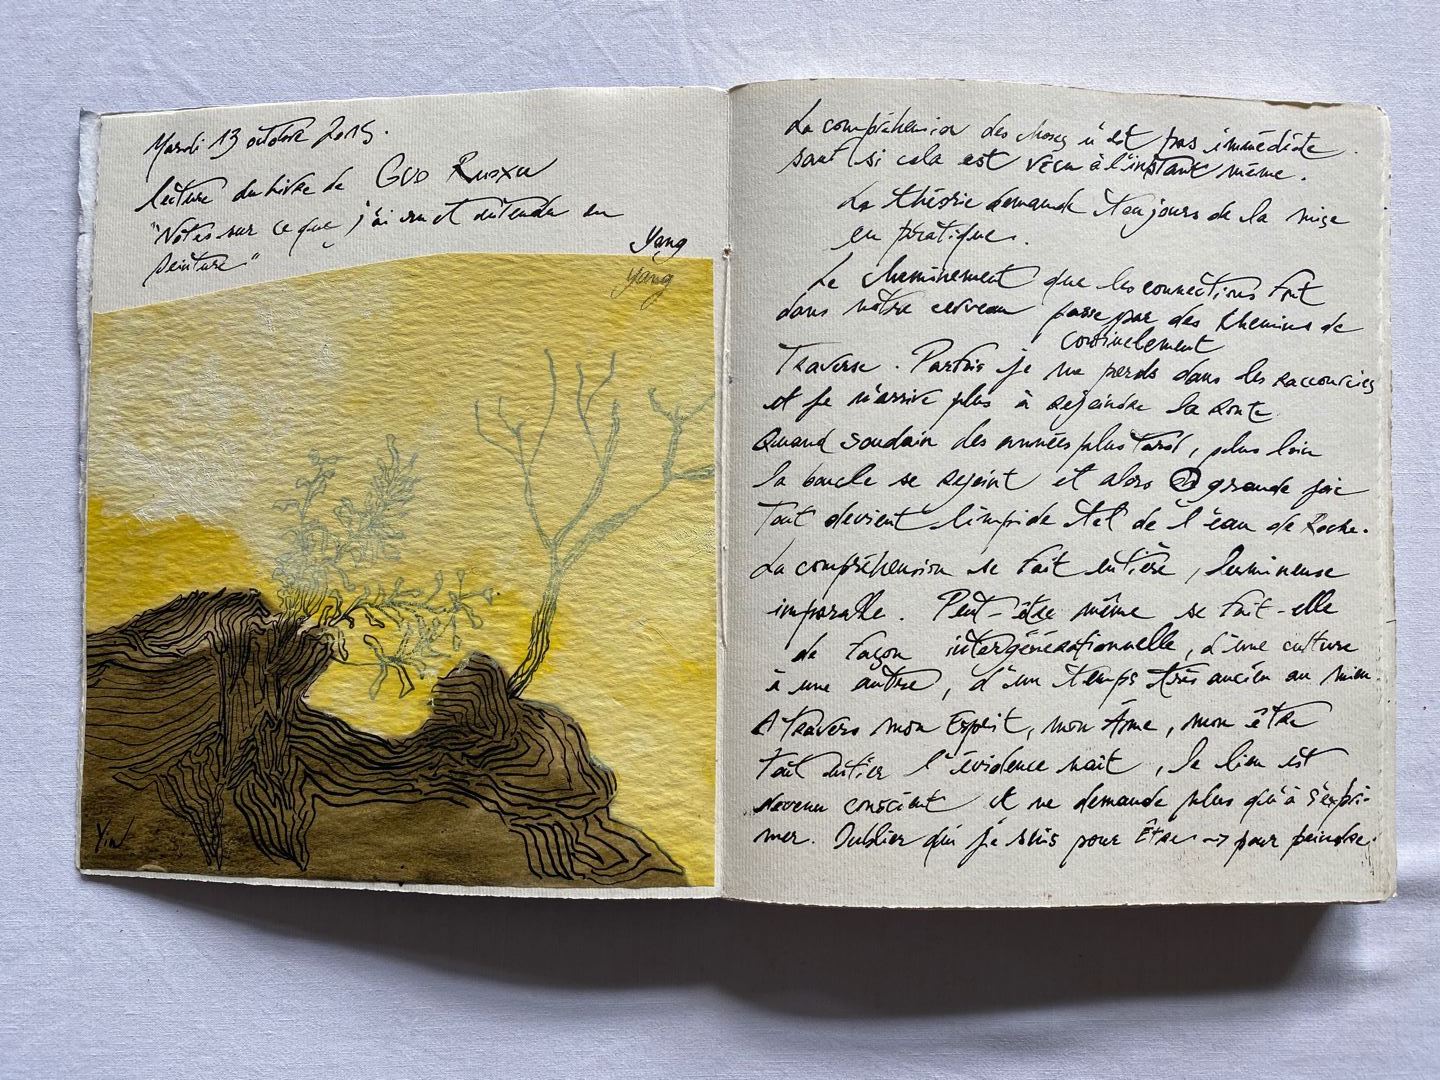 Mardi 13 octobre 2015.
lecture du livre de GUO RUOXU
"Notes sur ce que j'ai vu et entendu en
peinture"
Yang
Yang
Yin
La compréhension des choses n'est pas immédiate
sauf si cela est vécu à l'instant même.
La théorie demande toujours de la mise
en pratique.
Le cheminement que les connections font
dans notre cerveau passe par des chemins de
continuellement
Traverse. Parfois je me perds dans les raccourcis
et je n'arrive plus à rejoindre la route
Quand soudain des années plus tard, plus loin
la boucle se rejoint et alors grande joie
Tout devient limpide tel de l'eau de Roche.
La compréhension se fait entière, lumineuse
imparable. Peut-être même se fait-elle
de façon intergénérationnelle, d'une culture
à une autre, d'un temps très ancien au mien.
A travers mon Esprit, mon Âme, mon être
tout entier l'évidence nait, le lien est
devenu conscient et ne demande plus qu'à s'expri-
mer. Oublier qui je suis pour Être → pour peindre.